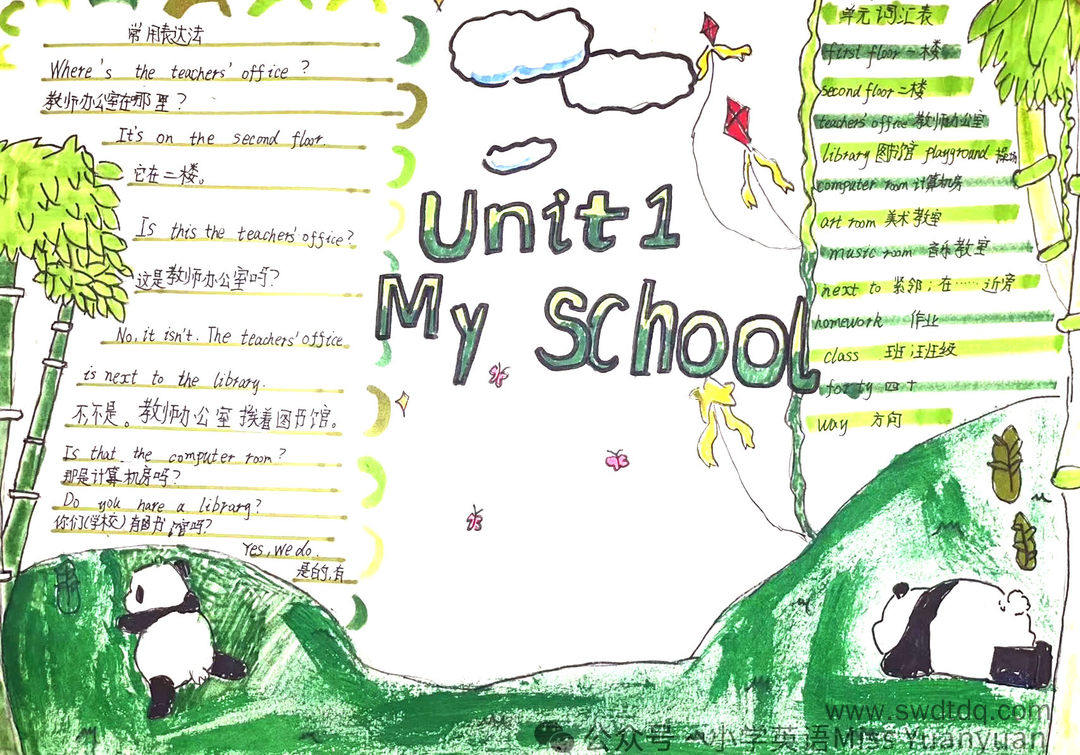 常用表达法
Where's the teachers' office?
教师办公室在哪里?
It's on the second floor.
它在二楼。
Is this the teachers' office?
这是教师办公室吗?
No, it isn't. The teachers' office
is next to the library.
不,不是。教师办公室挨着图书馆。
Is that the computer room?
那是计算机房吗?
Do you have a library?
你们(学校)有图书馆吗?
Yes, we do.
是的,有
Unit 1
My School
单元词汇表
first floor 一楼
second floor 二楼
teachers' office 教师办公室
library 图书馆 playground 操场
computer room 计算机房
art room 美术教室
music room 音乐教室
next to 紧邻;在……近旁
homework 作业
class 班;班级
forty 四十
way 方向
www.swdtdq.com
公众号 小学英语Miss Yuanyuan